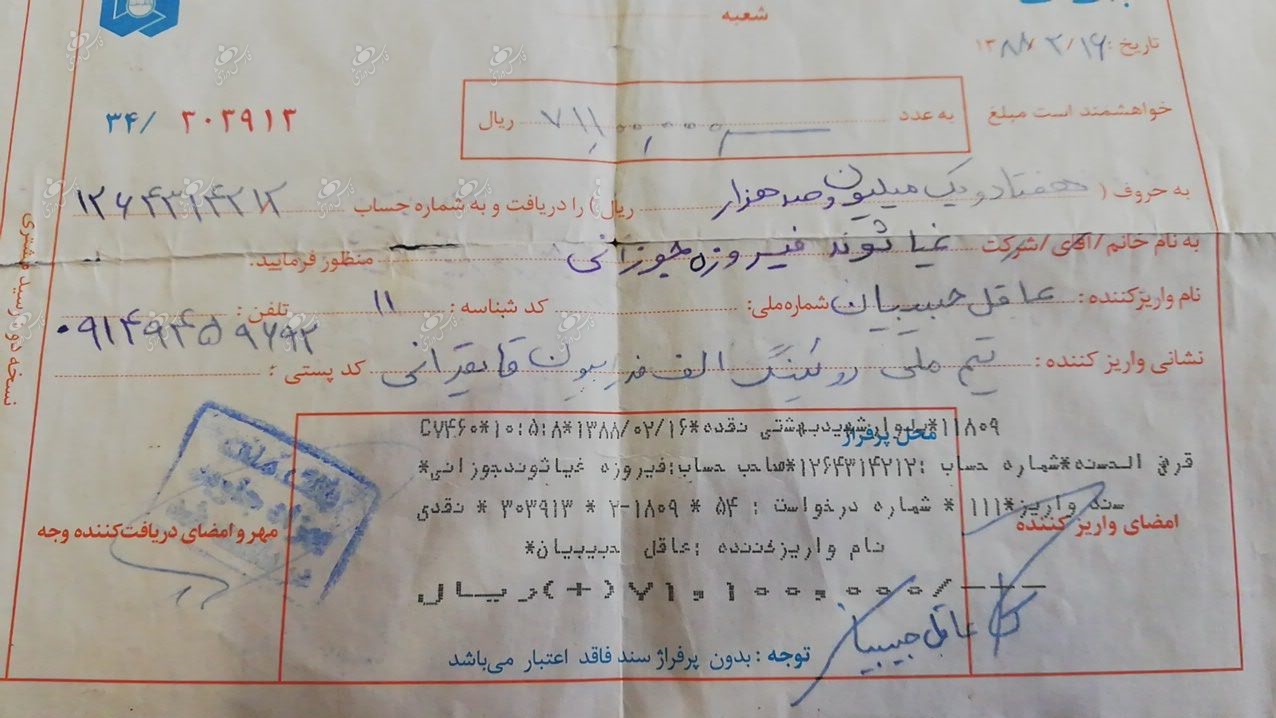 شعبه
تاریخ : ۱۳۸۸/۲/۱۶
خواهشمند است مبلغ به عدد ۷۱,۱۰۰,۰۰۰ ریال
۳۴/ ۳۰۳۹۱۳
به حروف ( هفتاد و یک میلیون و صد هزار ریال) را دریافت و به شماره حساب ۱۲۶۴۳۱۴۲۱۲
به نام خانم /آقای /شرکت غیاثوند فیروزه جوزانی منظور فرمایید.
نام واریزکننده : عاقل حبیبیان شماره‌ملی: کد شناسه : ۱۱ تلفن :
۰۹۱۴۹۴۵۹۶۹۲
نشانی واریز کننده : تیم ملی روئینگ الف فدراسیون قایقرانی کد پستی :
۱۱۸۰۹*بلوارشهیدبهشتی نقده*۱۳۸۸/۰۲/۱۶*۱۰:۵:۸*C۷۴۶۰
محل پرفراژ
قرض الحسنه*شماره حساب :۱۲۶۴۳۱۴۲۱۲*صاحب حساب:فیروزه غیاثوندجوزانی*
سند واریز*۱۱۱ * شماره درخواست : ۵۴ * ۱۸۰۹-۲ * ۳۰۳۹۱۳ * نقدی
امضای واریز کننده
مهر و امضای دریافت‌کننده وجه
نام واریزکننده :عاقل حبیبیان*
۷۱,۱۰۰,۰۰۰/--- (+)ریال
عاقل حبیبیان
توجه : بدون پرفراژ سند فاقد اعتبار می‌باشد
نسخه دو : رسید مشتری